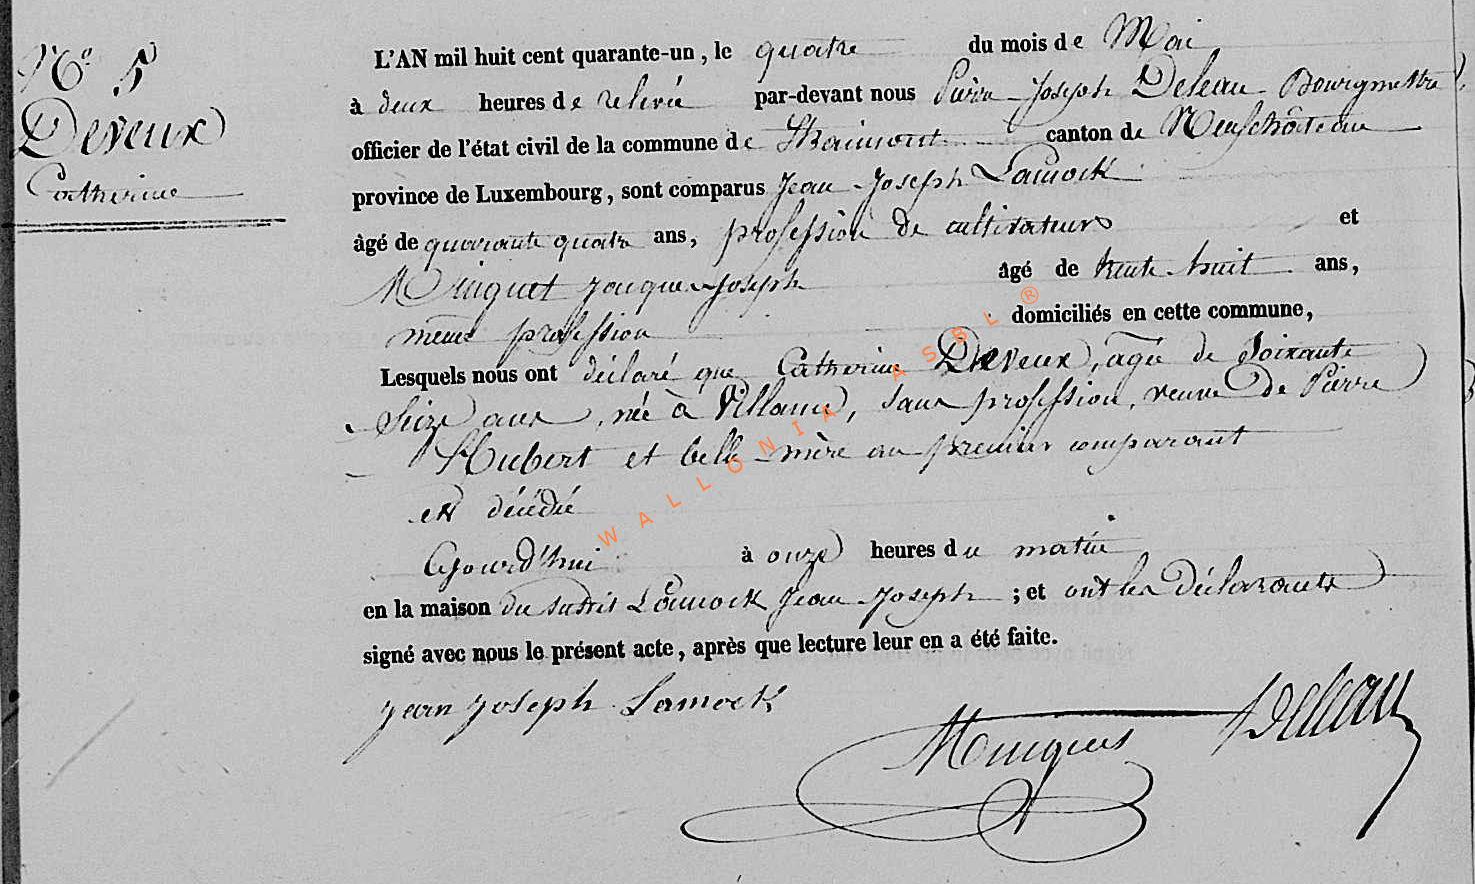 N.º 5
Deveux
Catherine
L'AN mil huit cent quarante-un, le quatre du mois de Mai
à deux heures de relevée par-devant nous Pierre Joseph Deleau Bourgmestre,
officier de l'état civil de la commune de canton de Neufchâteau
province de Luxembourg, sont comparus Jean-Joseph Lamock
âgé de quarante quatre ans, profession de cultivateurs et
Minguet Jacques Joseph âgé de trente-huit ans,
même profession domiciliés en cette commune,
Lesquels nous ont déclaré que Catherine Deveux, agée de soixante
seize ans, née à Villance, sans profession, veuve de Pierre
Hubert et belle-mère au premier comparant
est décédée
ajourd'hui à onze heures du matin
en la maison du susdit Lamock Jean-Joseph ; et ont les déclarants
signé avec nous le présent acte, après que lecture leur en a été faite.
Jean Joseph Lamock
Minguet Deleau
WALLONIA ASBL ®